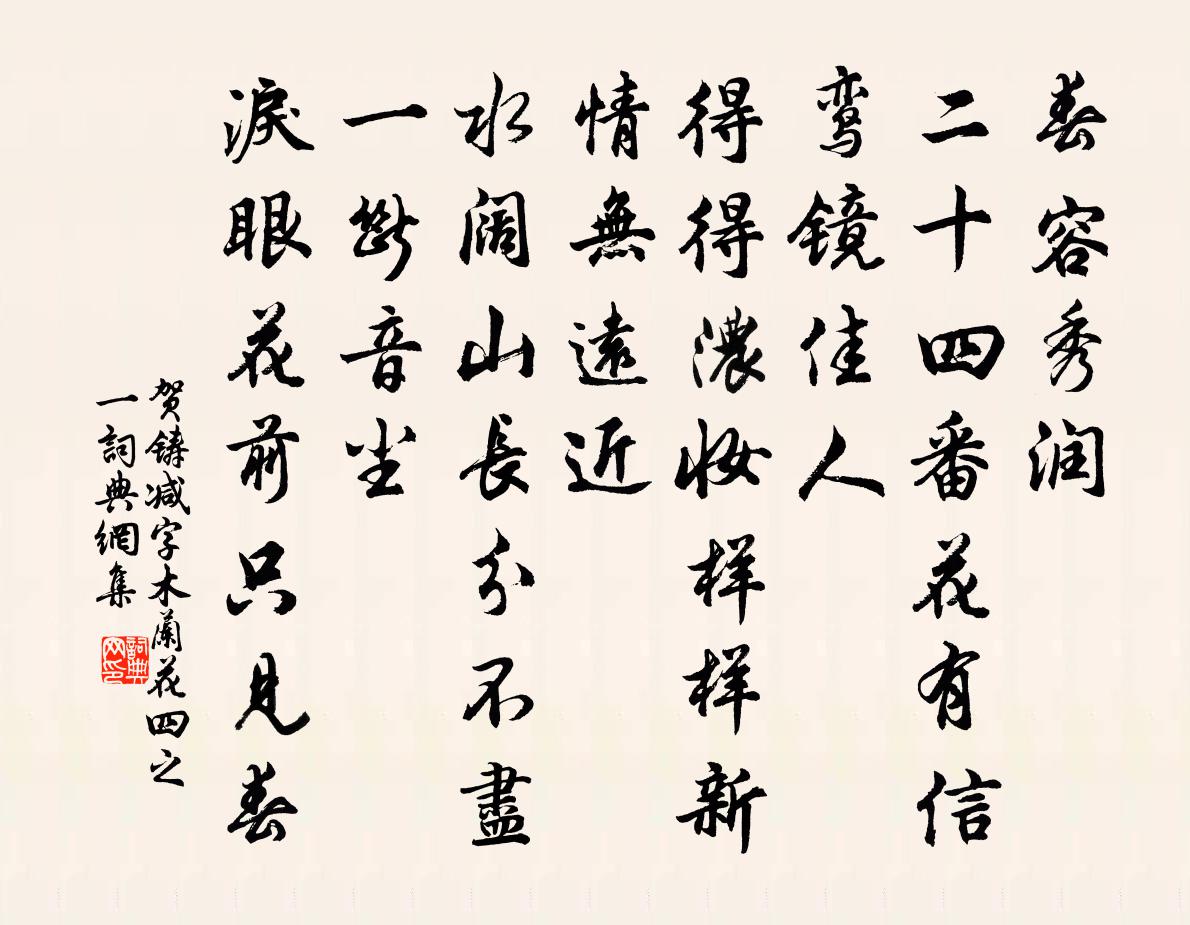 春容秀润
二十四番花有信
鸾镜佳人
得得濃妝样样新
情無遠近
水阔山長分不盡
一斷音尘
淚眼花前只见春
贺鑄减字木蘭花四之
一詞典網集
詞典网印